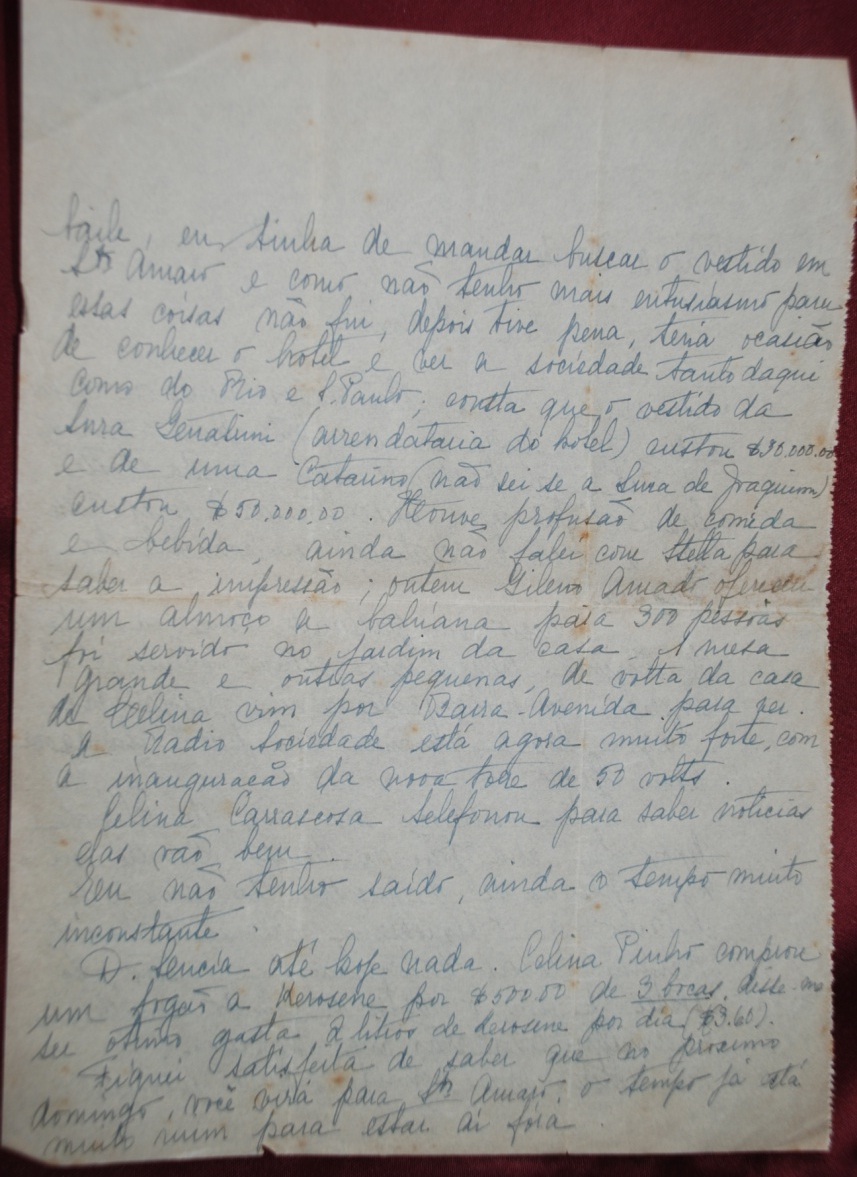 baile, eu tinha de mandar buscar o vestido em
Sto Amaro e como não tenho mais entusiasmo para
essas coisas não fui, depois tive pena, teria ocasião
de conhecer o hotel e ver a sociedade tanto daqui
como do Rio e S. Paulo; consta que o vestido da
Snra (arrendataria do hotel) custou $30.000.00
e de uma Catarino (não sei se a Snra de Joaquim)
custou $50.000.00. Houve profusão de comida
e bebida, ainda não falei com Stella para
saber a impressão; ontem Gileno Amado ofereceu
um almoço a bahiana para 300 pessôas
foi servido no jardim da casa. A mesa
grande e outras pequenas, de volta da casa
de Celina vim por Barra-Avenida para ver.
A Radio Sociedade está agora muito forte, com
a inauguração da nova torre de 50 volts.
Celina Carrascosa telefonou para saber noticias
elas vão bem.
Eu não tenho saído, ainda o tempo muito
inconstante.
D. até hoje nada. Celina Pinho comprou
um fogão a Kerosene por $500.00 de 3 bocas, disse-me
ser otimo gasta 2 litros de kerosene por dia ($3.60).
Fiquei satisfeita de saber que no proximo
domingo, você virá para Sto Amaro, o tempo já está
muito ruim para estar aí fóra.